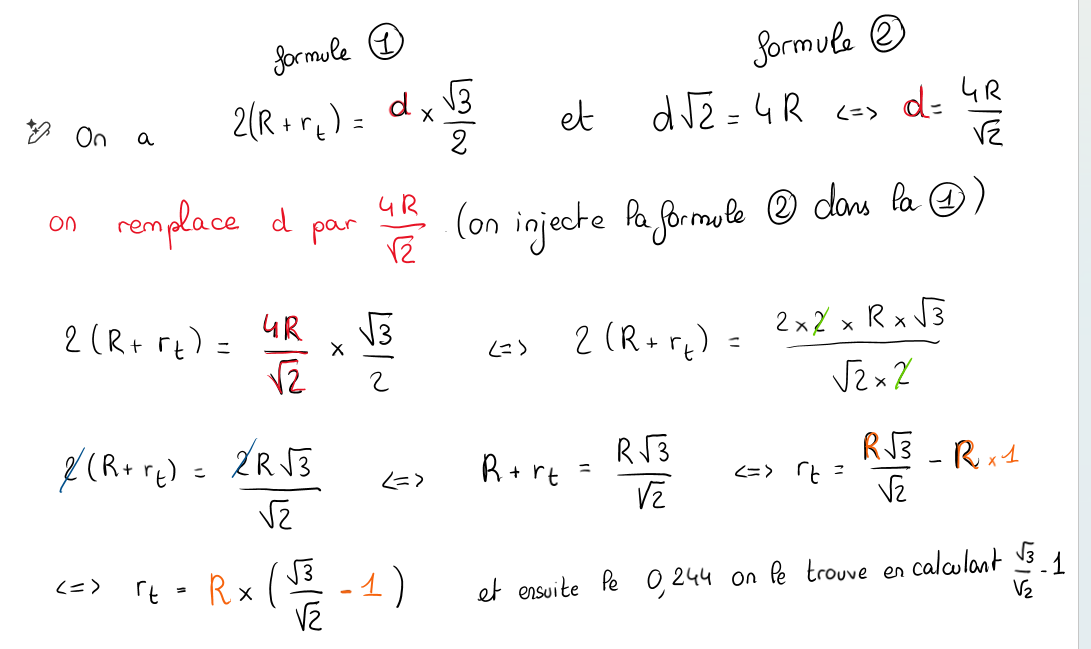 formule ① formule ②
On a 2(R + r_t) = d × √3/2 et d√2 = 4R <=> d = 4R/√2
on remplace d par 4R/√2 (on injecte la formule ② dans la ①)
2(R + r_t) = 4R/√2 × √3/2 <=> 2(R + r_t) = (2 × 2 × R × √3)/(√2 × 2)
2(R + r_t) = 2R√3/√2 <=> R + r_t = R√3/√2 <=> r_t = R√3/√2 - R × 1
<=> r_t = R × (√3/√2 - 1) et ensuite le 0,244 on le trouve en calculant √3/√2 - 1